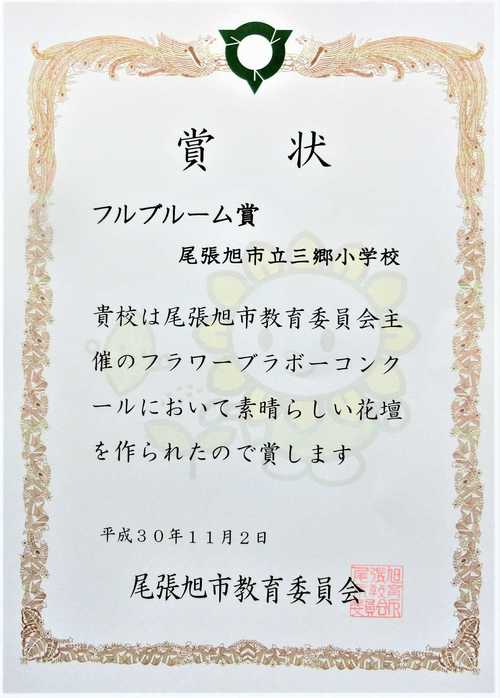 賞 状
フルブルーム賞
尾張旭市立三郷小学校
貴校は尾張旭市教育委員会主
催のフラワーブラボーコンク
ールにおいて素晴らしい花壇
を作られたので賞します
平成30年11月2日
尾張旭市教育委員会